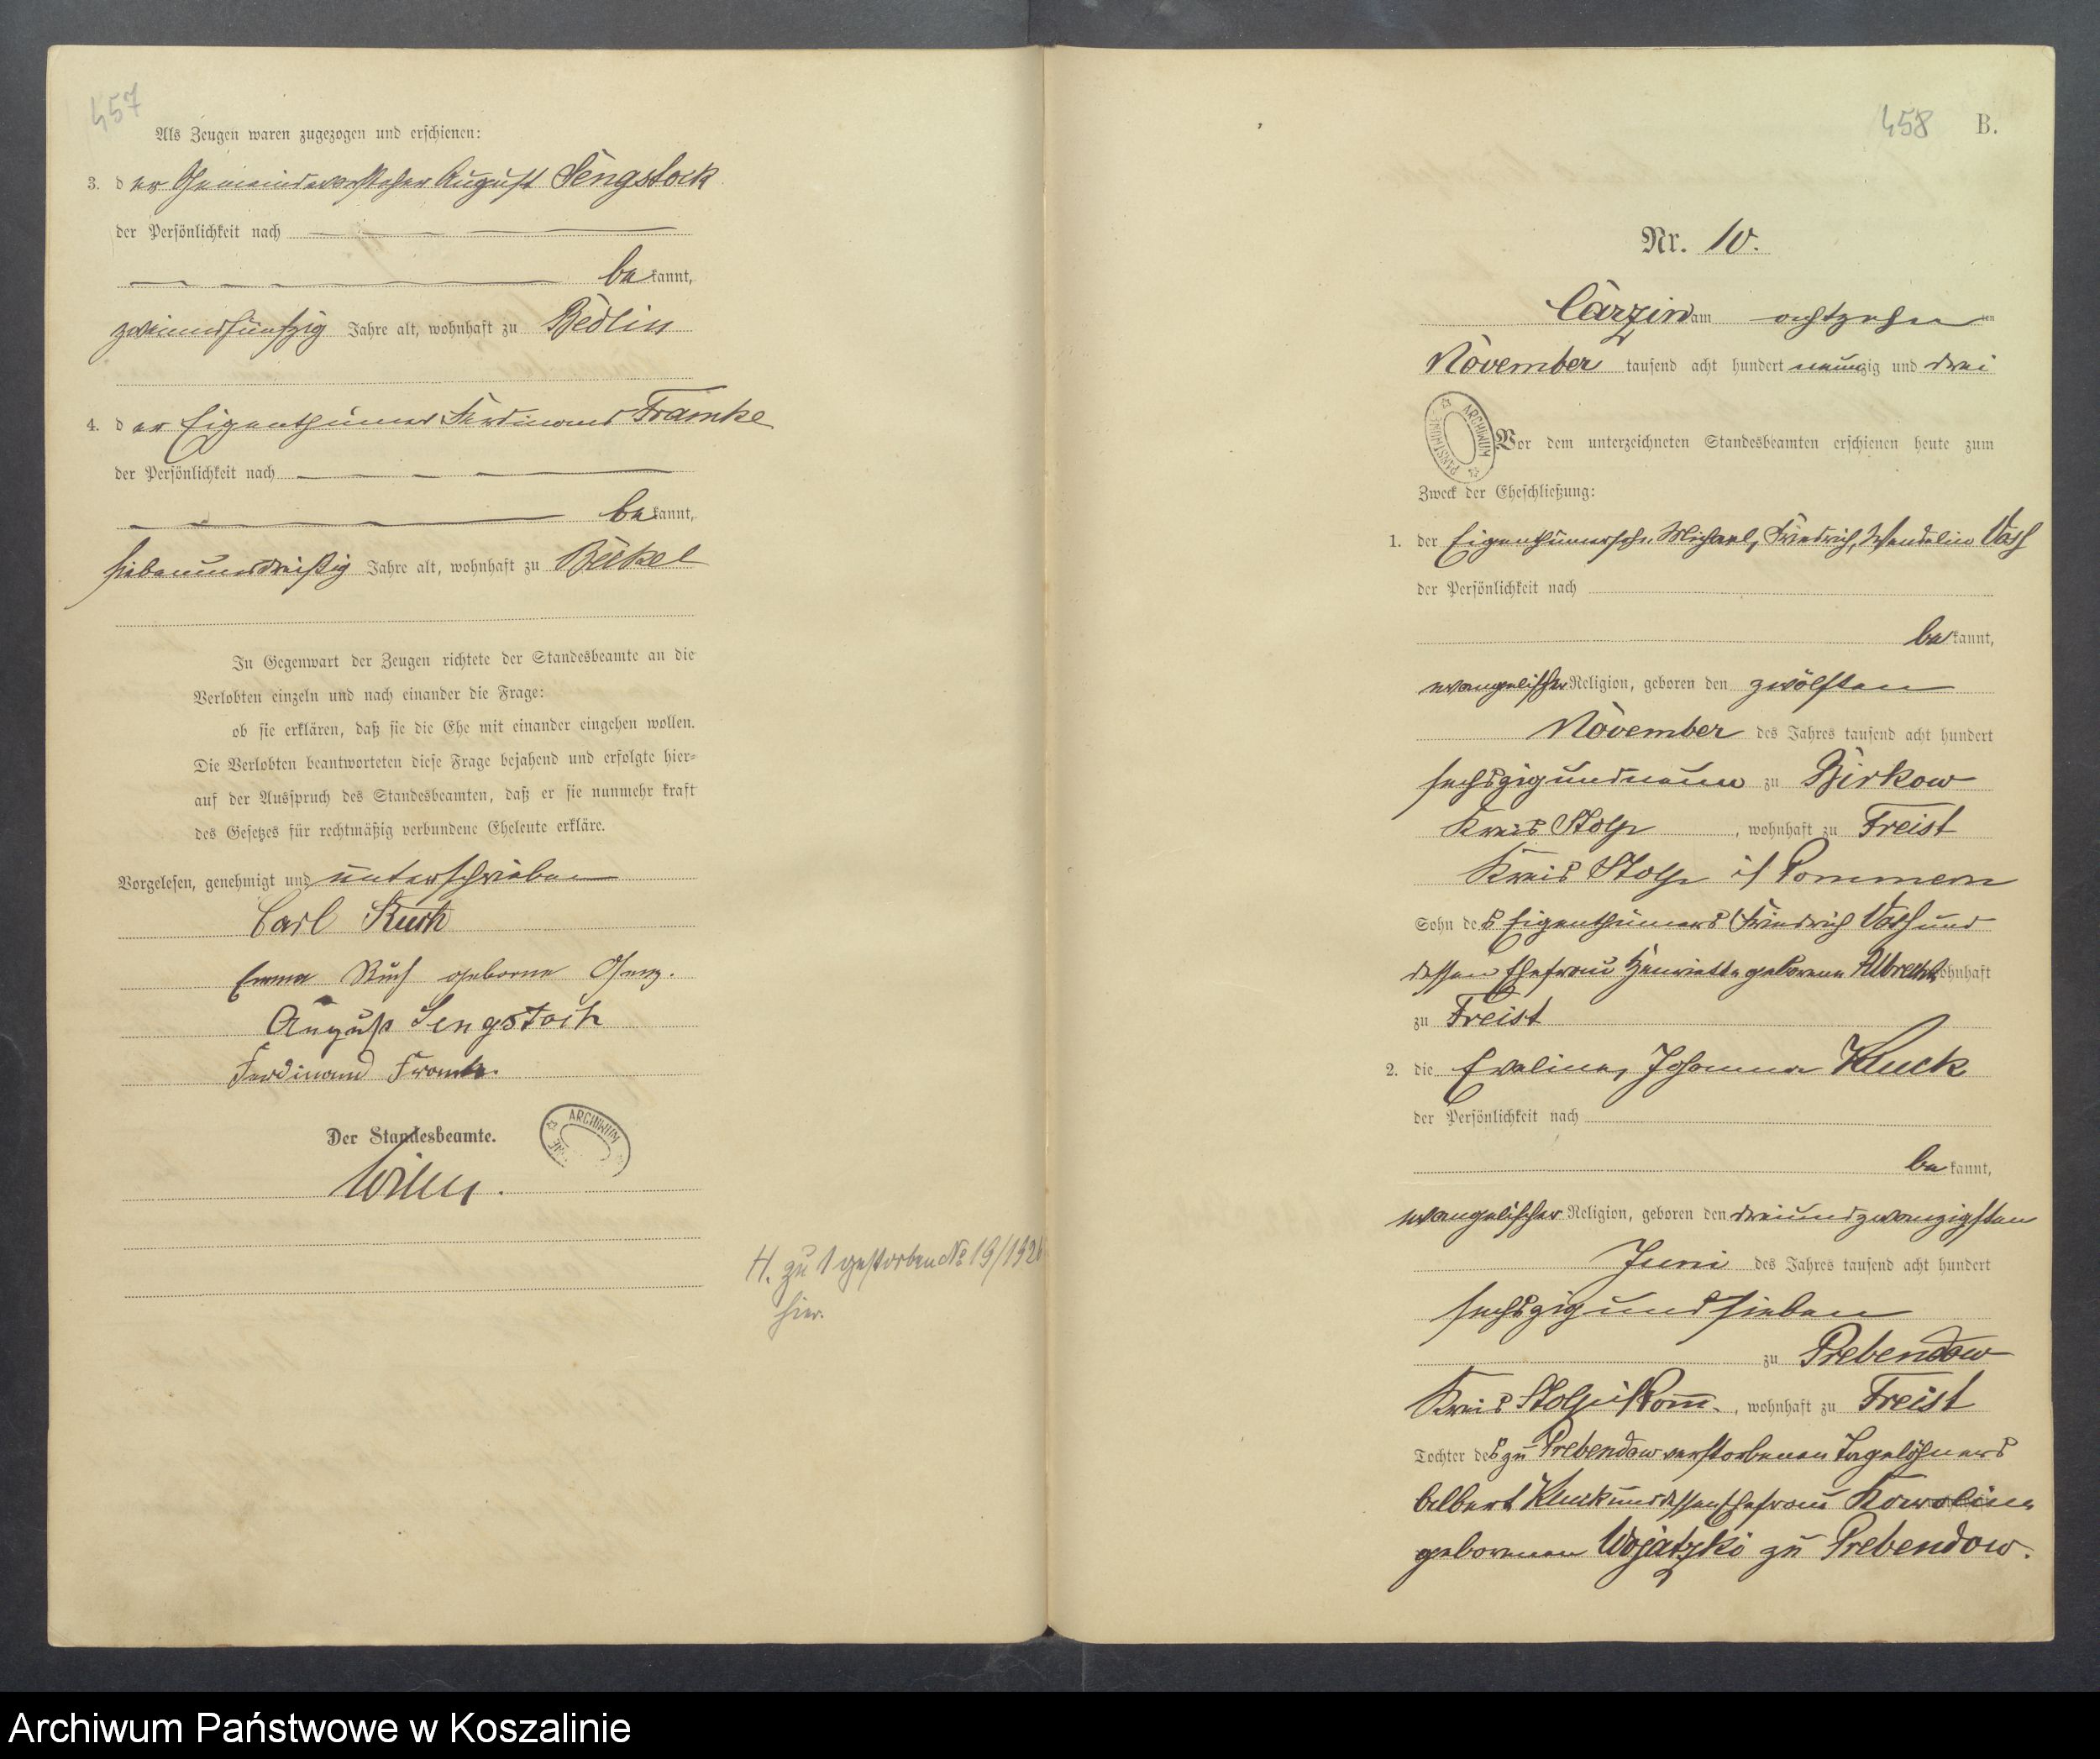 457
Als Zeugen waren zugezogen und erschienen:
3. der Gemeindevorsteher August Sengstock
der Persönlichkeit nach
bekannt,
zweiundfünfzig Jahre alt, wohnhaft zu Bedlin
4. der Eigenthümer Ferdinand Framke
der Persönlichkeit nach
bekannt,
siebenunddreißig Jahre alt, wohnhaft zu Beckel
In Gegenwart der Zeugen richtete der Standesbeamte an die
Verlobten einzeln und nach einander die Frage:
ob sie erklären, daß sie die Ehe mit einander eingehen wollen.
Die Verlobten beantworteten diese Frage bejahend und erfolgte hier-
auf der Ausspruch des Standesbeamten, daß er sie nunmehr kraft
des Gesetzes für rechtmäßig verbundene Eheleute erkläre.
Vorgelesen, genehmigt und unterschrieben
Carl
Emma geborne
August Sengstock
Ferdinand Framke.
Der Standesbeamte.
ARCHIWUM
H. zu 1 gestorben No 19/192
hier.
458 B.
Nr. 10.
Carzin am achtzehn ten
November tausend acht hundert neunzig und drei
ARCHIWUM PAŃSTWOWE
Vor dem unterzeichneten Standesbeamten erschienen heute zum
Zweck der Eheschließung:
1. der Eigenthümersohn Michael, Friedrich, Wendelin Voß
der Persönlichkeit nach
bekannt,
evangelischer Religion, geboren den zwölften
November des Jahres tausend acht hundert
sechszig und neun zu Birkow
Kreis Stolp, wohnhaft zu Freist
Kreis Stolp i/ Pommern
Sohn des Eigenthümers Friedrich Voß und
dessen Ehefrau Henriette geborene Albrecht wohnhaft
zu Freist
2. die Evaline, Johanna Kluck
der Persönlichkeit nach
bekannt,
evangelischer Religion, geboren den dreiundzwanzigsten
Juni des Jahres tausend acht hundert
sechszig und sieben
zu Prebendow
Kreis Stolp i/ Pomm., wohnhaft zu Freist
Tochter des zu Prebendow verstorbenen Tagelöhners
Albert Kluck und dessen Ehefrau Karoline
geborenen Wojatzki zu Prebendow.
Archiwum Państwowe w Koszalinie